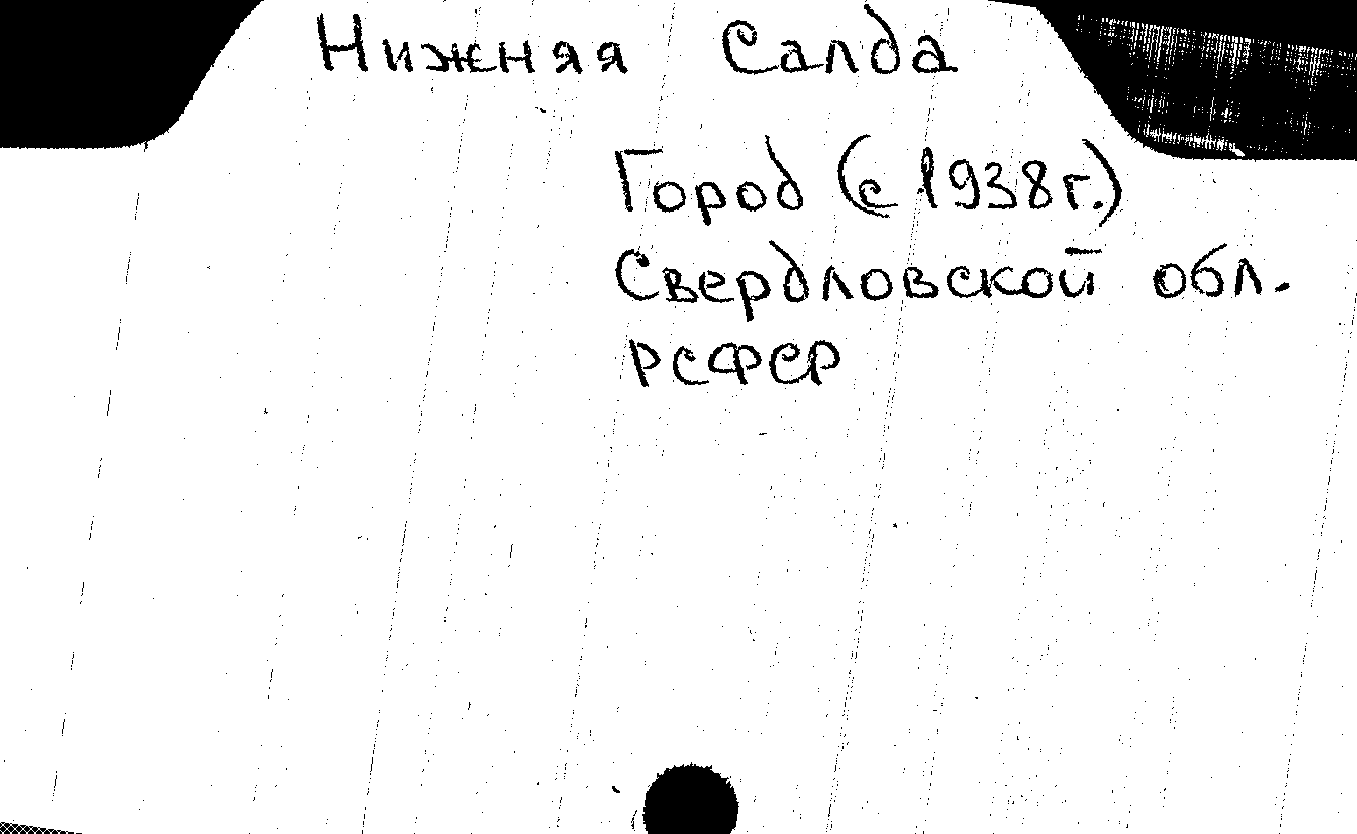 Нижняя Салда
Город (с 1938г.)
Свердловской обл.
РСФСР